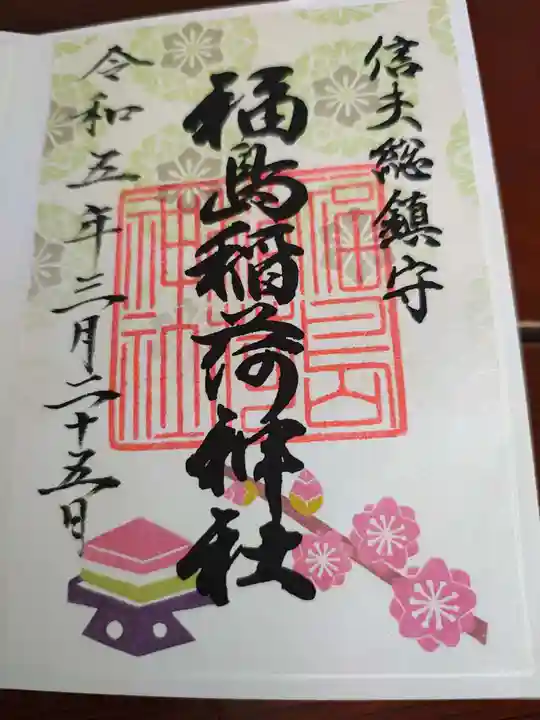 信夫総鎮守
福島稲荷神社
令和五年三月二十五日